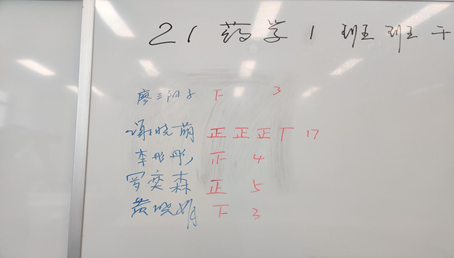 21药学1班班干
廖三 下 3
谢晓萌 正正正丅 17
李彤彤 正 4
罗奕森 正 5
晓娟 下 3